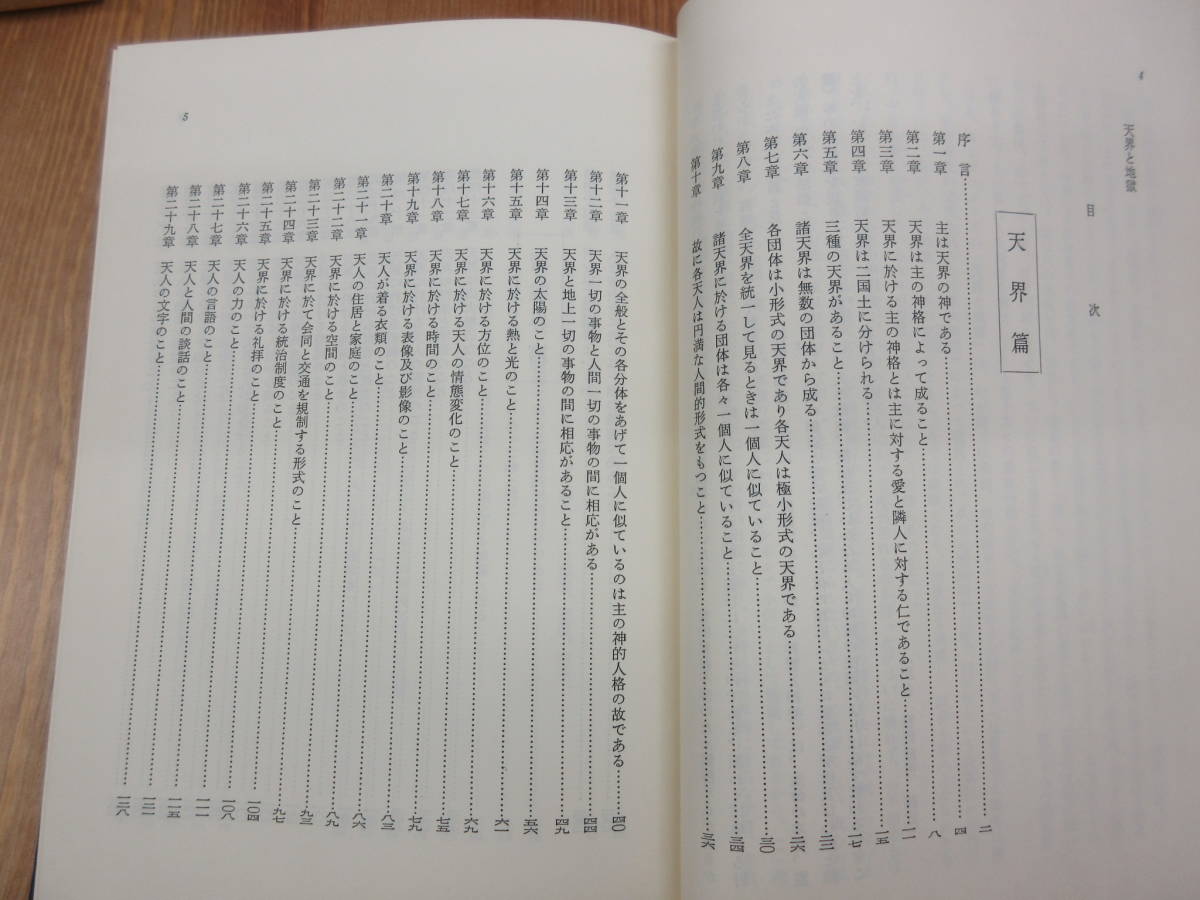 4
天界と地獄
目次
天界篇
序言…………二
第一章 主は天界の神である…………四
第二章 天界は主の神格によって成ること…………八
第三章 天界に於ける主の神格とは主に対する愛と隣人に対する仁であること…………一一
第四章 天界は二国土に分けられる…………一五
第五章 三種の天界があること…………一七
第六章 諸天界は無数の団体から成る…………二二
第七章 各団体は小形式の天界であり各天人は極小形式の天界である…………二六
第八章 全天界を統一して見るときは一個人に似ていること…………三〇
第九章 諸天界に於ける団体は各々一個人に似ていること…………三四
第十章 故に各天人は円満な人間的形式をもつこと…………三六
5
第十一章 天界の全般とその各分体をあげて一個人に似ているのは主の神的人格の故である…………四〇
第十二章 天界一切の事物と人間一切の事物の間に相応がある…………四四
第十三章 天界と地上一切の事物の間に相応があること…………四九
第十四章 天界の太陽のこと…………五六
第十五章 天界に於ける熱と光のこと…………六一
第十六章 天界に於ける方位のこと…………六九
第十七章 天界に於ける天人の情態変化のこと…………七五
第十八章 天界に於ける時間のこと…………七九
第十九章 天界に於ける表像及び影像のこと…………八三
第二十章 天人が着る衣類のこと…………八六
第二十一章 天人の住居と家庭のこと…………八九
第二十二章 天界に於ける空間のこと…………九三
第二十三章 天界に於て会同と交通を規制する形式のこと…………九七
第二十四章 天界に於ける統治制度のこと…………一〇四
第二十五章 天界に於ける礼拝のこと…………一〇八
第二十六章 天人の力のこと…………一一一
第二十七章 天人の言語のこと…………一一五
第二十八章 天人と人間の談話のこと…………一二一
第二十九章 天人の文字のこと…………一二八